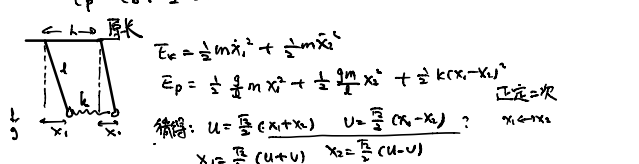 L 原长
l
k
x₁ x₂
l/g
E_k = ½mẋ₁² + ½mẋ₂²
E_p = ½ g/l m x₁² + ½ gm/l x₂² + ½k(x₁-x₂)²
正定二次
x₁↔x₂
猜得: u = √2/2 (x₁+x₂) U = √2/2 (x₁-x₂) ?
x₁ = √2/2 (u+U) x₂ = √2/2 (u-U)